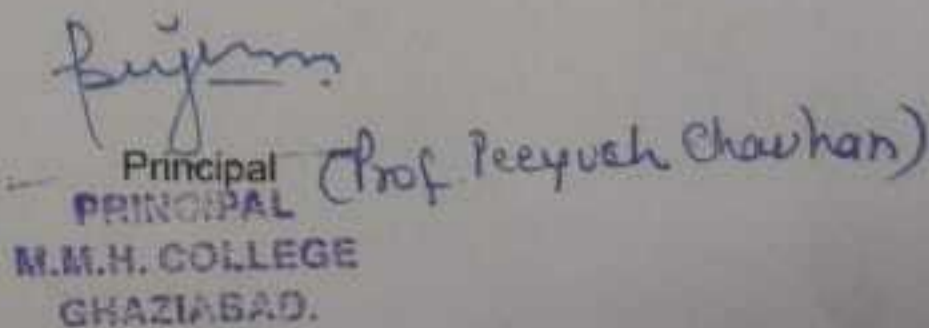 Principal (Prof Peeyush Chauhan)
PRINCIPAL
M.M.H. COLLEGE
GHAZIABAD.